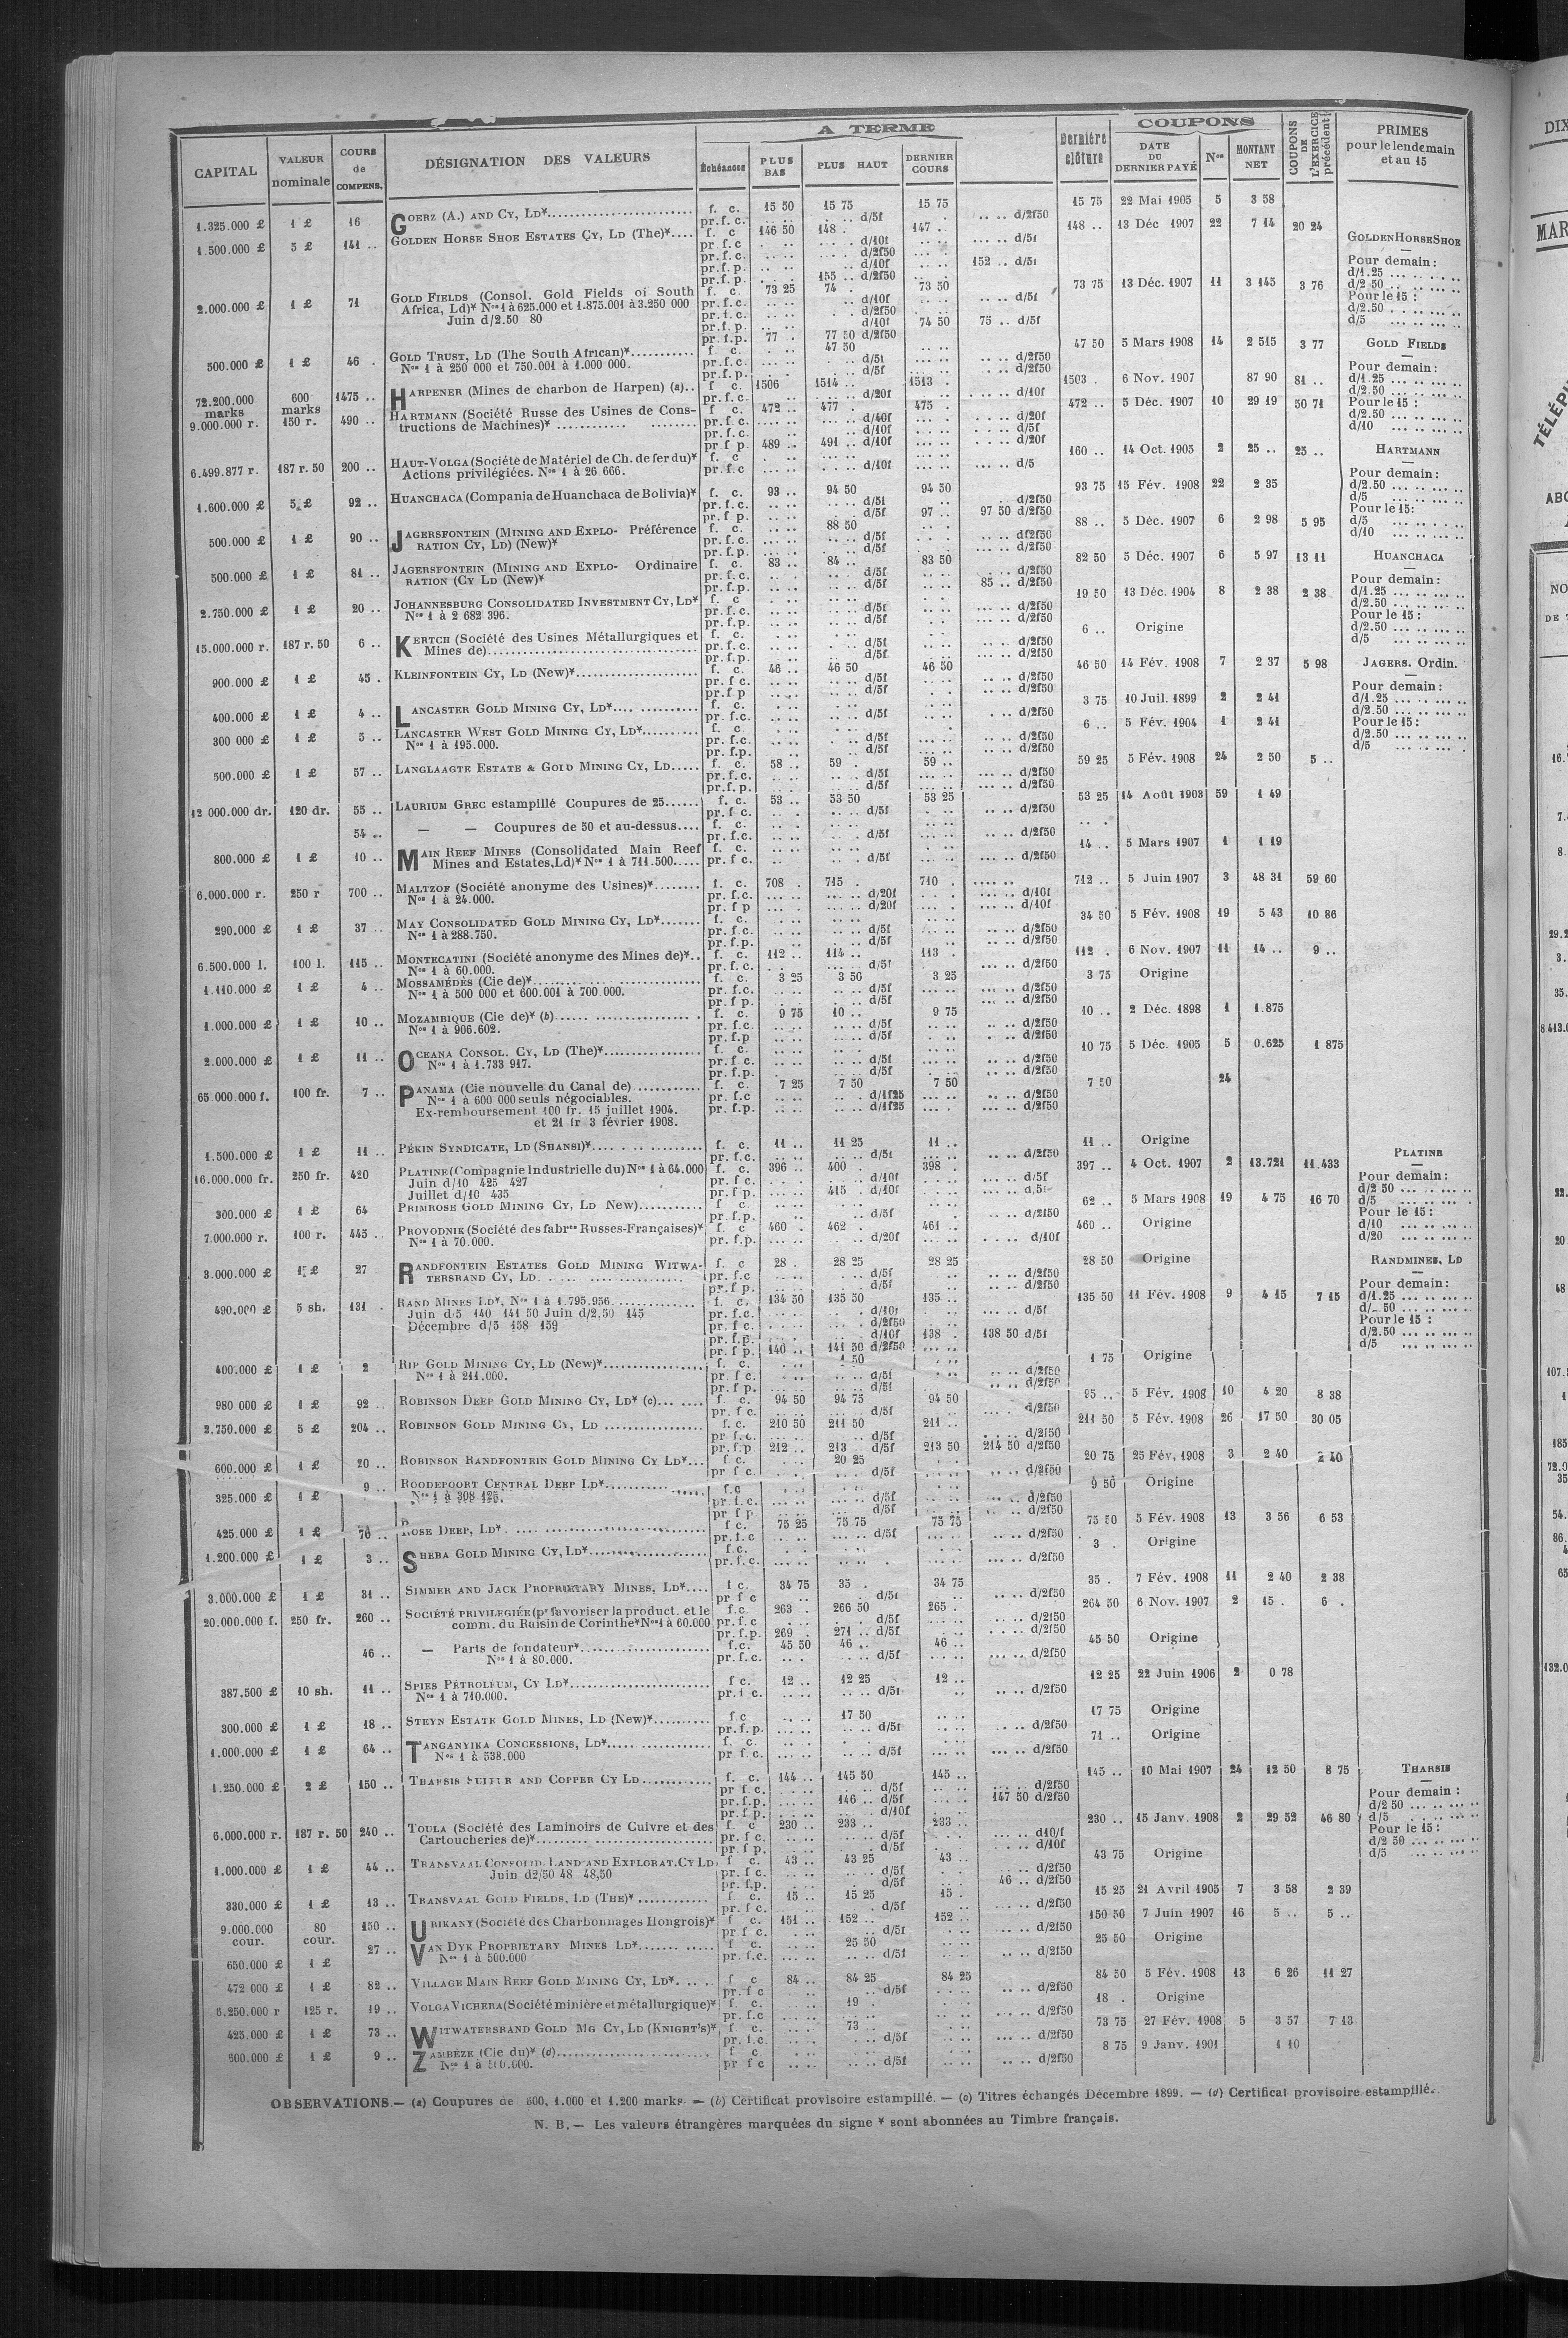 A TERME
COUPONS
CAPITAL | VALEUR nominale | COURS de COMPENS. | DÉSIGNATION DES VALEURS | Échéances | PLUS BAS | PLUS HAUT | DERNIER COURS | Dernière clôture | DATE DU DERNIER PAYÉ | Nos | MONTANT NET | COUPONS DE L'EXERCICE précédent | PRIMES pour le lendemain et au 15
1.325.000 £ | 1 £ | 16 | GOERZ (A.) AND CY, LD* | f. c. | 15 50 | 15 75 | 15 75 | 15 75 | 22 Mai 1905 | 5 | 3 58
pr. f. c. | d/5f | d/2f50
1.500.000 £ | 5 £ | 141 .. | GOLDEN HORSE SHOE ESTATES CY, LD (The)* | f. c | 146 50 | 148 . | 147 . | 148 .. | 13 Déc 1907 | 22 | 7 14 | 20 24
pr. f. c | d/10f | d/5f
pr. f. c. | d/2f50
pr. f. p. | d/10f | 152 .. d/5f
pr. f. p. | 155 .. d/2f50
2.000.000 £ | 1 £ | 71 | GOLD FIELDS (Consol. Gold Fields of South | f. c. | 73 25 | 74 . | 73 50 | 73 75 | 13 Déc. 1907 | 11 | 3 145 | 3 76
Africa, Ld)* Nos 1 à 625.000 et 1.875.001 à 3.250 000 | pr. f. c. | d/10f | d/5f
Juin d/2.50 80 | pr. f. c. | d/2f50
pr. f. p. | d/10f | 74 50 | 75 .. d/5f
pr. f. p. | 77 . | 77 50 d/2f50
500.000 £ | 1 £ | 46 . | GOLD TRUST, LD (The South African)* | f c. | 47 50 | 47 50 | 5 Mars 1908 | 14 | 2 515 | 3 77
Nos 1 à 250 000 et 750.001 à 1.000 000. | pr. f. c. | d/5f | d/2f50
pr. f. p. | d/5f | d/2f50
72.200.000 marks | 600 marks | 1475 .. | HARPENER (Mines de charbon de Harpen) (a).. | f c. | 1506 | 1514 .. | 1513 . | 1503 . | 6 Nov. 1907 | 87 90 | 81 ..
pr. f. c. | d/20f | d/10f
9.000.000 r. | 150 r. | 490 .. | HARTMANN (Société Russe des Usines de Cons- | f c. | 472 .. | 477 . | 475 . | 472 .. | 5 Déc. 1907 | 10 | 29 19 | 50 71
tructions de Machines)* | pr. f. c. | d/40f | d/20f
pr. f. c. | d/10f | d/5f
pr. f p. | 489 .. | 491 .. d/10f | d/20f
6.499.877 r. | 187 r. 50 | 200 .. | HAUT-VOLGA (Société de Matériel de Ch. de fer du)* | f. c | 160 .. | 14 Oct. 1905 | 2 | 25 .. | 25 ..
Actions privilégiées. Nos 1 à 26 666. | pr. f. c | d/10f | d/5
1.600.000 £ | 5 £ | 92 .. | HUANCHACA (Compania de Huanchaca de Bolivia)* | f. c. | 93 .. | 94 50 | 94 50 | 93 75 | 15 Fév. 1908 | 22 | 2 35
pr. f. c. | d/5f | d/2f50
pr. f p. | d/5f | 97 .. | 97 50 d/2f50
500.000 £ | 1 £ | 90 .. | JAGERSFONTEIN (MINING AND EXPLO- Préférence | f. c. | 88 50 | 88 .. | 5 Déc. 1907 | 6 | 2 98 | 5 95
RATION CY, LD) (New)* | pr. f. c. | d/5f | df2f50
pr. f. p. | d/5f | d/2f50
500.000 £ | 1 £ | 81 .. | JAGERSFONTEIN (MINING AND EXPLO- Ordinaire | f. c. | 83 .. | 84 .. | 83 50 | 82 50 | 5 Déc. 1907 | 6 | 5 97 | 13 11
RATION (CY LD (New)* | pr. f. c. | d/5f | d/2f50
pr. f. p. | d/5f | 85 .. d/2f50
2.750.000 £ | 1 £ | 20 .. | JOHANNESBURG CONSOLIDATED INVESTMENT CY, LD* | f. c | 19 50 | 13 Déc. 1904 | 8 | 2 38 | 2 38
Nos 1 à 2 682 396. | pr. f. c. | d/5f | d/2f50
pr. f. p. | d/5f | d/2f50
15.000.000 r. | 187 r. 50 | 6 .. | KERTCH (Société des Usines Métallurgiques et | f. c. | 6 .. | Origine
Mines de) | pr. f. c. | d/5f | d/2f50
pr. f. p. | d/5f | d/2f50
900.000 £ | 1 £ | 45 . | KLEINFONTEIN CY, LD (New)* | f. c. | 46 .. | 46 50 | 46 50 | 46 50 | 14 Fév. 1908 | 7 | 2 37 | 5 98
pr. f c. | d/5f | d/2f50
pr. f p | d/5f | d/2f50
400.000 £ | 1 £ | 4 .. | LANCASTER GOLD MINING CY, LD* | f. c. | 3 75 | 10 Juil. 1899 | 2 | 2 41
pr. f. c. | d/5f | d/2f50
300 000 £ | 1 £ | 5 .. | LANCASTER WEST GOLD MINING CY, LD* | f. c | 6 .. | 5 Fév. 1904 | 1 | 2 41
Nos 1 à 195.000. | pr. f. c. | d/5f | d/2f50
pr. f. p. | d/5f | d/2f50
500.000 £ | 1 £ | 57 .. | LANGLAAGTE ESTATE & GOLD MINING CY, LD | f. c. | 58 .. | 59 . | 59 .. | 59 25 | 5 Fév. 1908 | 24 | 2 50 | 5 ..
pr. f. c. | d/5f | d/2f50
pr. f. p. | d/5f | d/2f50
12 000.000 dr. | 120 dr. | 55 .. | LAURIUM GREC estampillé Coupures de 25 | f. c. | 53 .. | 53 50 | 53 25 | 53 25 | 14 Août 1903 | 59 | 1 49
pr. f c. | d/5f | d/2f50
54 .. | — — Coupures de 50 et au-dessus | f. c.
pr. f. c. | d/5f | d/2f50
800.000 £ | 1 £ | 10 .. | MAIN REEF MINES (Consolidated Main Reef | f. c. | 14 .. | 5 Mars 1907 | 1 | 1 19
Mines and Estates, Ld)* Nos 1 à 711.500. | pr. f c. | d/5f | d/2f50
6.000.000 r. | 250 r | 700 .. | MALTZOF (Société anonyme des Usines)* | f. c. | 708 . | 715 . | 710 . | 712 .. | 5 Juin 1907 | 3 | 48 31 | 59 60
Nos 1 à 24.000. | pr. f. c. | d/20f | d/10f
pr. f p | d/20f | d/10f
290.000 £ | 1 £ | 37 .. | MAY CONSOLIDATED GOLD MINING CY, LD* | f. c. | 34 50 | 5 Fév. 1908 | 19 | 5 43 | 10 86
Nos 1 à 288.750. | pr. f. c. | d/5f | d/2f50
pr. f. p. | d/5f | d/2f50
6.500.000 l. | 100 l. | 115 .. | MONTECATINI (Société anonyme des Mines de)*.. | f. c. | 112 .. | 114 .. | 113 . | 112 . | 6 Nov. 1907 | 11 | 14 .. | 9 ..
Nos 1 à 60.000. | pr. f. c. | d/5f | d/2f50
1.110.000 £ | 1 £ | 4 .. | MOSSAMÉDÈS (Cie de)* | f. c. | 3 25 | 3 50 | 3 25 | 3 75 | Origine
Nos 1 à 500 000 et 600.001 à 700.000. | pr. f. c. | d/5f | d/2f50
pr. f p. | d/5f | d/2f50
1.000.000 £ | 1 £ | 10 .. | MOZAMBIQUE (Cie de)* (b) | f. c. | 9 75 | 10 .. | 9 75 | 10 .. | 2 Déc. 1898 | 1 | 1.875
Nos 1 à 906.602. | pr. f. c. | d/5f | d/2f50
pr. f. p | d/5f | d/2f50
2.000.000 £ | 1 £ | 11 .. | OCEANA CONSOL. CY, LD (The)* | f. c. | 10 75 | 5 Déc. 1905 | 5 | 0.625 | 1 875
Nos 1 à 1.733 917. | pr. f c. | d/5f | d/2f50
pr. f. p. | d/5f | d/2f50
65 000.000 f. | 100 fr. | 7 .. | PANAMA (Cie nouvelle du Canal de) | f. c. | 7 25 | 7 50 | 7 50 | 7 50 | 24
Nos 1 à 600 000 seuls négociables. | pr. f. c | d/1f25 | d/2f50
Ex-remboursement 100 fr. 15 juillet 1904. | pr. f. p. | d/1f25 | d/2f50
et 21 fr 3 février 1908.
1.500.000 £ | 1 £ | 11 .. | PÉKIN SYNDICATE, LD (SHANSI)* | f. c. | 11 .. | 11 25 | 11 .. | 11 .. | Origine
pr. f. c. | d/5f | d/2f50
16.000.000 fr. | 250 fr. | 420 | PLATINE (Compagnie Industrielle du) Nos 1 à 64.000 | f. c. | 396 .. | 400 . | 398 . | 397 .. | 4 Oct. 1907 | 2 | 13.721 | 11.433
Juin d/10 425 427 | pr. f c. | d/10f | d/5f
Juillet d/10 435 | pr. f p. | 415 . d/10f | d/5f
300.000 £ | 1 £ | 64 | PRIMROSE GOLD MINING CY, LD New) | f c | 62 .. | 5 Mars 1908 | 19 | 4 75 | 16 70
pr. f. p. | d/5f | d/2f50
7.000.000 r. | 100 r. | 445 .. | PROVODNIK (Société des fabres Russes-Françaises)* | f. c | 460 . | 462 . | 461 .. | 460 .. | Origine
Nos 1 à 70.000. | pr. f. p. | d/20f | d/10f
3.000.000 £ | 1 £ | 27 | RANDFONTEIN ESTATES GOLD MINING WITWA- | f. c | 28 . | 28 25 | 28 25 | 28 50 | Origine
TERSRAND CY, LD | pr. f. c | d/5f | d/2f50
pr. f. p. | d/5f | d/2f50
490.000 £ | 5 sh. | 131 . | RAND MINES LD*, Nos 1 à 1.795.956. | f. c. | 134 50 | 135 50 | 135 .. | 135 50 | 11 Fév. 1908 | 9 | 4 15 | 7 15
Juin d/5 140 141 50 Juin d/2.50 145 | pr. f. c. | d/10f | d/5f
Décembre d/5 158 159 | pr. f c. | d/2f50
pr. f. p. | d/10f | 138 . | 138 50 d/5f
pr. f p. | 140 .. | 141 50 d/2f50
400.000 £ | 1 £ | 2 | RIP GOLD MINING CY, LD (New)* | f. c. | 1 50 | 1 75 | Origine
Nos 1 à 211.000. | pr. f c. | d/5f | d/2f50
pr. f p. | d/5f | d/2f50
980 000 £ | 1 £ | 92 .. | ROBINSON DEEP GOLD MINING CY, LD* (c) | f. c. | 94 50 | 94 75 | 94 50 | 95 .. | 5 Fév. 1908 | 10 | 4 20 | 8 38
pr. f c. | d/5f | d/2f50
2.750.000 £ | 5 £ | 204 .. | ROBINSON GOLD MINING CY, LD | f. c. | 210 50 | 211 50 | 211 .. | 211 50 | 5 Fév. 1908 | 26 | 17 50 | 30 05
pr f. c. | d/5f | d/2f50
pr. f. p. | 212 .. | 213 d/5f | 213 50 | 214 50 d/2f50
600.000 £ | 1 £ | 20 .. | ROBINSON RANDFONTEIN GOLD MINING CY LD* | f c. | 20 25 | 20 75 | 25 Fév. 1908 | 3 | 2 40 | 2 40
pr f c. | d/5f | d/2f50
325.000 £ | 1 £ | 9 .. | ROODEPOORT CENTRAL DEEP LD* | f. c | 9 50 | Origine
Nos 1 à 308 125. | pr. f. c. | d/5f | d/2f50
pr f p | d/5f | d/2f50
425.000 £ | 1 £ | 76 .. | ROSE DEEP, LD* | f c. | 75 25 | 75 75 | 75 75 | 75 50 | 5 Fév. 1908 | 13 | 3 56 | 6 53
pr. f. c | d/5f | d/2f50
1.200.000 £ | 1 £ | 3 .. | SHEBA GOLD MINING CY, LD* | f. c. | 3 . | Origine
pr. f. c. | d/2f50
3.000.000 £ | 1 £ | 31 .. | SIMMER AND JACK PROPRIETARY MINES, LD* | f c. | 34 75 | 35 . | 34 75 | 35 . | 7 Fév. 1908 | 11 | 2 40 | 2 38
pr f c | d/5f | d/2f50
20.000.000 f. | 250 fr. | 260 .. | SOCIÉTÉ PRIVILEGIÉE (pr favoriser la product. et le | f. c. | 263 . | 266 50 | 265 . | 264 50 | 6 Nov. 1907 | 2 | 15 . | 6 .
comm. du Raisin de Corinthe* Nos 1 à 60.000 | pr. f. c | d/5f | d/2f50
pr. f. p. | 269 . | 271 .. d/5f | d/2f50
46 .. | — Parts de fondateur* | f. c. | 45 50 | 46 .. | 46 .. | 45 50 | Origine
Nos 1 à 80.000. | pr. f. c. | d/5f | d/2f50
387.500 £ | 10 sh. | 11 .. | SPIES PÉTROLEUM, CY LD* | f c. | 12 .. | 12 25 | 12 .. | 12 25 | 22 Juin 1906 | 2 | 0 78
Nos 1 à 710.000. | pr. f c. | d/5f | d/2f50
300.000 £ | 1 £ | 18 .. | STEYN ESTATE GOLD MINES, LD (New)* | f. c | 17 50 | 17 75 | Origine
pr. f. p. | d/5f | d/2f50
1.000.000 £ | 1 £ | 64 .. | TANGANYIKA CONCESSIONS, LD* | f. c. | 71 .. | Origine
Nos 1 à 538.000 | pr f c. | d/5f | d/2f50
1.250.000 £ | 2 £ | 150 .. | THARSIS SULFUR AND COPPER CY LD | f. c. | 144 .. | 145 50 | 145 .. | 145 .. | 10 Mai 1907 | 24 | 12 50 | 8 75
pr f c. | d/5f | d/2f50
pr. f. p. | 146 .. d/5f | 147 50 d/2f50
pr. f p. | d/10f
6.000.000 r. | 187 r. 50 | 240 .. | TOULA (Société des Laminoirs de Cuivre et des | f c | 230 .. | 233 .. | 233 .. | 230 .. | 15 Janv. 1908 | 2 | 29 52 | 46 80
Cartoucheries de)* | pr. f c. | d/5f | d10/f
pr. f p. | d/5f | d/10f
1.000.000 £ | 1 £ | 44 .. | TRANSVAAL CONSOLID. LAND AND EXPLORAT. CY LD | f c. | 43 .. | 43 25 | 43 .. | 43 75 | Origine
Juin d2/50 48 48,50 | pr. f c. | d/5f | d/2f50
pr. f. p. | d/5f | 46 .. d/2f50
330.000 £ | 1 £ | 13 .. | TRANSVAAL GOLD FIELDS, LD (THE)* | f c. | 15 .. | 15 25 | 15 . | 15 25 | 21 Avril 1905 | 7 | 3 58 | 2 39
pr. f c. | d/5f | d/2f50
9.000.000 cour. | 80 cour. | 150 .. | URIKANY (Société des Charbonnages Hongrois)* | f c. | 151 .. | 152 .. | 152 .. | 150 50 | 7 Juin 1907 | 16 | 5 .. | 5 ..
pr f c. | d/5f | d/2f50
650.000 £ | 1 £ | 27 .. | VAN DYK PROPRIETARY MINES LD* | f c. | 25 50 | 25 50 | Origine
Nos 1 à 500.000 | pr. f. c. | d/5f | d/2f50
472 000 £ | 1 £ | 82 .. | VILLAGE MAIN REEF GOLD MINING CY, LD* | f c | 84 .. | 84 25 | 84 25 | 84 50 | 5 Fév. 1908 | 13 | 6 26 | 11 27
pr. f c | d/5f | d/2f50
6.250.000 r | 125 r. | 19 .. | VOLGA VICHERA (Société minière et métallurgique)* | f. c. | 19 . | 18 . | Origine
pr. f. c | d/2f50
425.000 £ | 1 £ | 73 .. | WITWATERSRAND GOLD MG CY, LD (KNIGHT'S)* | f. c. | 73 .. | 73 75 | 27 Fév. 1908 | 5 | 3 57 | 7 13
pr. f. c. | d/5f | d/2f50
600.000 £ | 1 £ | 9 .. | ZAMBÈZE (Cie du)* (d) | f c | 8 75 | 9 Janv. 1901 | 1 10
pr f c | d/5f | d/2f50
GOLDEN HORSE SHOE
Pour demain:
d/1.25
d/2 50
Pour le 15:
d/2.50
d/5
GOLD FIELDS
Pour demain:
d/1.25
d/2.50
Pour le 15:
d/2.50
d/10
HARTMANN
Pour demain:
d/2.50
d/5
Pour le 15:
d/5
d/10
HUANCHACA
Pour demain:
d/1.25
d/2.50
Pour le 15:
d/2.50
d/5
JAGERS. Ordin.
Pour demain:
d/1.25
d/2.50
Pour le 15:
d/2.50
d/5
PLATINE
Pour demain:
d/2 50
d/5
Pour le 15:
d/10
d/20
RANDMINES, LD
Pour demain:
d/1.25
Pour le 15:
d/2.50
d/5
THARSIS
Pour demain:
d/2 50
d/5
Pour le 15:
d/2 50
d/5
OBSERVATIONS.— (a) Coupures de 600, 1.000 et 1.200 marks. — (b) Certificat provisoire estampillé. — (c) Titres échangés Décembre 1899. — (d) Certificat provisoire estampillé.
N. B.— Les valeurs étrangères marquées du signe * sont abonnées au Timbre français.
DIX
MAR
TÉLÉPH